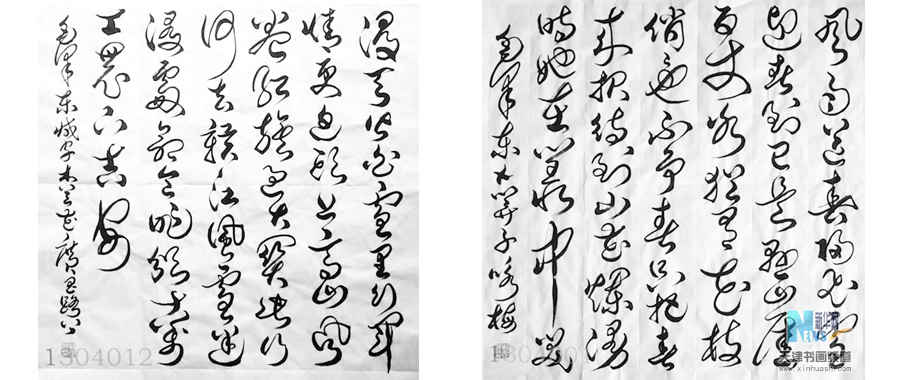 漫天皆白雪里行军
情更迫头上高山风
卷红旗过大关此行
何去赣江风雪迷
漫处命令昨颁十万
工农下吉安
毛泽东减字木兰花广昌路上
1304012
风雨送春归飞雪
迎春到已是悬崖
百丈冰犹有花枝
俏也不争春只把春
来报待到山花烂漫
时她在丛中笑
毛泽东卜算子咏梅
NEWS
天津书画频道